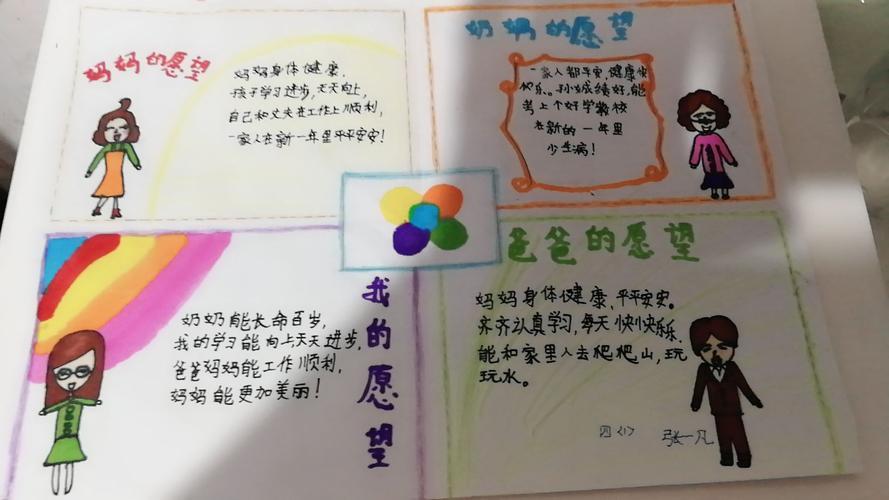 妈妈的愿望
妈妈身体健康,
孩子学习进步,天天向上,
自己和丈夫在工作上顺利,
一家人在新一年里平平安安!
奶奶的愿望
一家人都平安,健康快
快乐。孙成绩好,能
考上个好学校
在新的一年里
少生病!
我的愿望
奶奶能长命百岁,
我的学习能向上天天进步,
爸爸妈妈能工作顺利,
妈妈能更加美丽!
爸爸的愿望
妈妈身体健康,平平安安。
齐齐认真学习,每天快快乐乐,
能和家里人去爬爬山,玩
玩水。
四〈1〉 张一凡